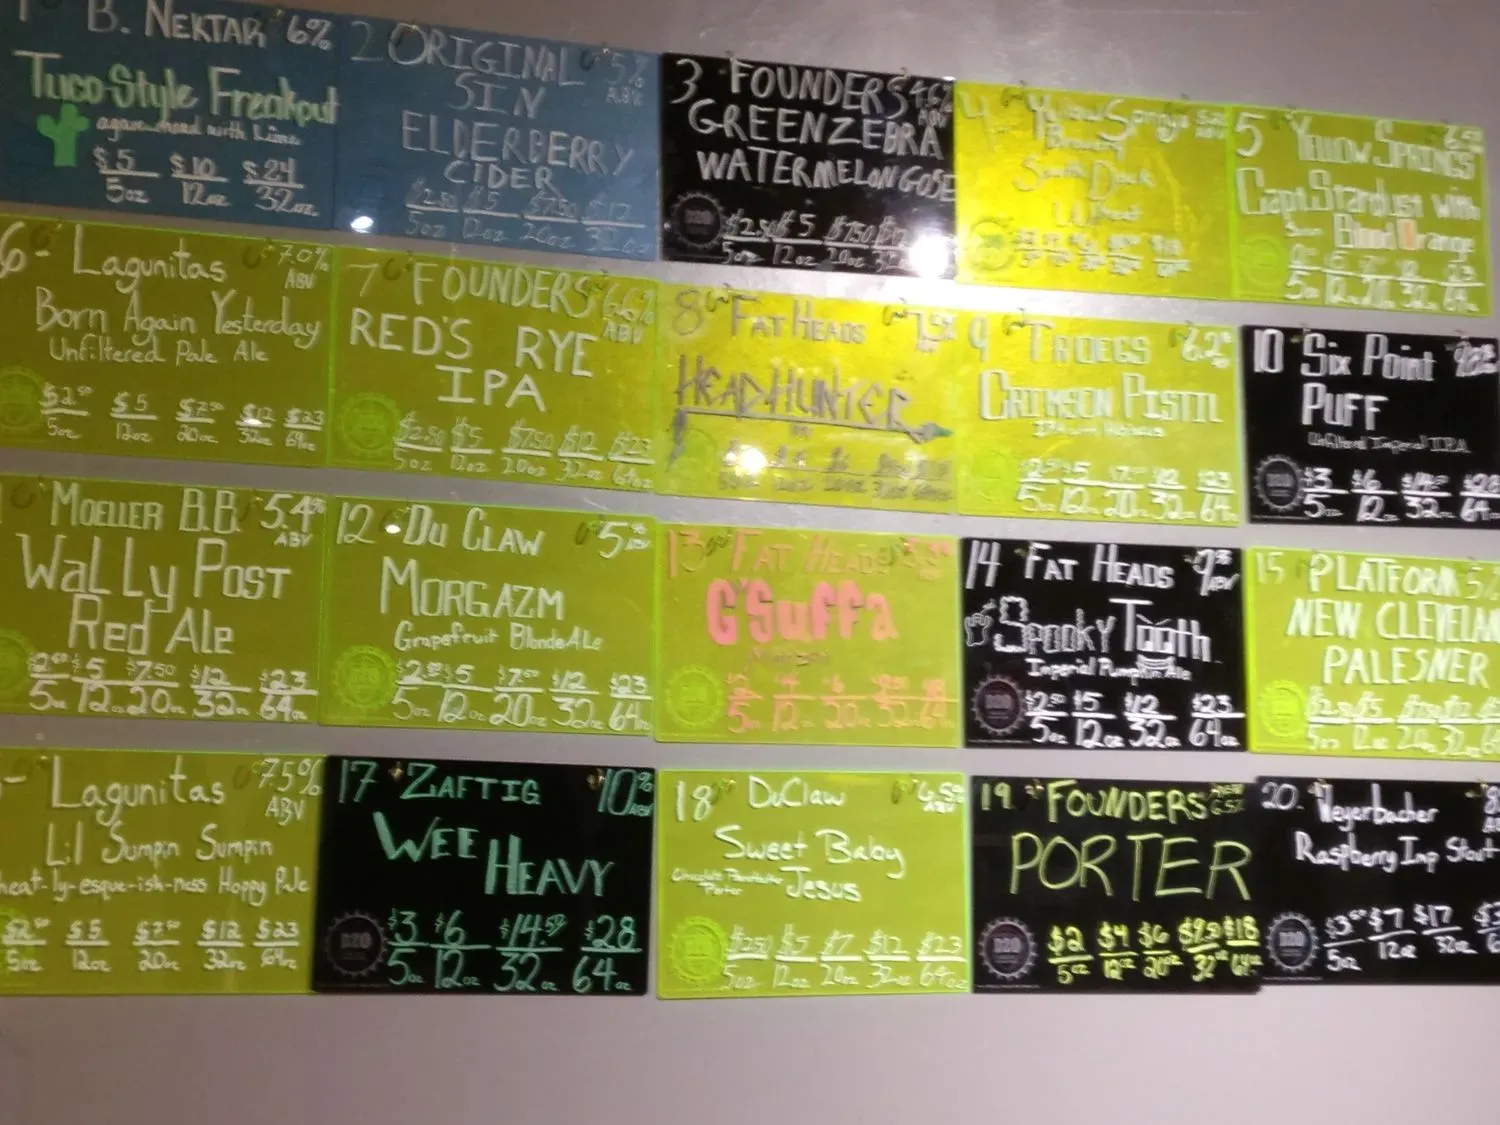 1 B. NEKTAR 6%
Tuco-Style Freakout
agave mead with Lime
$5 $10 $24
5oz 12oz 32oz
2 ORIGINAL 5%
SIN ABV
ELDERBERRY
CIDER
$2.50 $5 $7.50 $12
5oz 12oz 20oz 32oz
3 FOUNDERS 4.6%
GREENZEBRA ABV
WATERMELON GOSE
$2.50 $5 $7.50
5oz 12oz 20oz
4 Yellow Springs
Brewery
South Dock
Wheat
5 YELLOW SPRINGS
Capt Stardust with
Blood Orange
5oz 12oz 20oz 32oz 64oz
6- Lagunitas 7.0%
ABV
Born Again Yesterday
Unfiltered Pale Ale
$2.50 $5 $7.50 $12 $23
5oz 12oz 20oz 32oz 64oz
7 FOUNDERS 6.6%
ABV
RED'S RYE
IPA
$2.50 $5 $7.50 $12 $23
5oz 12oz 20oz 32oz 64oz
8 FAT HEADS
HEADHUNTER
9 TROEGS 6.2%
CRIMSON PISTIL
IPA with Hibiscus
$5 $12 $23
5oz 12oz 20oz 32oz 64oz
10 Six Point
PUFF
Unfiltered Imperial IPA
$3 $6 $14.50 $28
5oz 12oz 32oz 64oz
MOELLER B.B. 5.4%
ABV
WALLY POST
Red Ale
$2.50 $5 $7.50 $12 $23
5oz 12oz 20oz 32oz 64oz
12 DU CLAW 5%
ABV
MORGAZM
Grapefruit Blonde Ale
$2.50 $5 $7.50 $12 $23
5oz 12oz 20oz 32oz 64oz
13 FAT HEADS
G'Suffa
$2 $4 $6 $18
5oz 12oz 20oz 32oz 64oz
14 FAT HEADS
ABV
SPOOKY TOOTH
Imperial Pumpkin Ale
$2.50 $5 $12 $23
5oz 12oz 32oz 64oz
15 PLATFORM 5%
NEW CLEVELAN
PALESNER
$2.50 $5 $7.50
5oz 12oz 20oz 32oz
- Lagunitas 7.5%
ABV
Lil Sumpin Sumpin
heat-ly-esque-ish-ness Hoppy Pale
$2.50 $5 $7.50 $12 $23
5oz 12oz 20oz 32oz 64oz
17 ZAFTIG 10%
ABV
WEE HEAVY
$3 $6 $14.50 $28
5oz 12oz 32oz 64oz
18 DuClaw 6.5%
ABV
Sweet Baby
Jesus
Chocolate Peanutbutter
Porter
$2.50 $5 $7 $12 $23
5oz 12oz 20oz 32oz 64oz
19. FOUNDERS 6.5%
PORTER
$2 $4 $6 $9.50 $18
5oz 12oz 20oz 32oz 64oz
20. Weyerbacher
Raspberry Imp Stout
$3.50 $7 $17
5oz 12oz 32oz